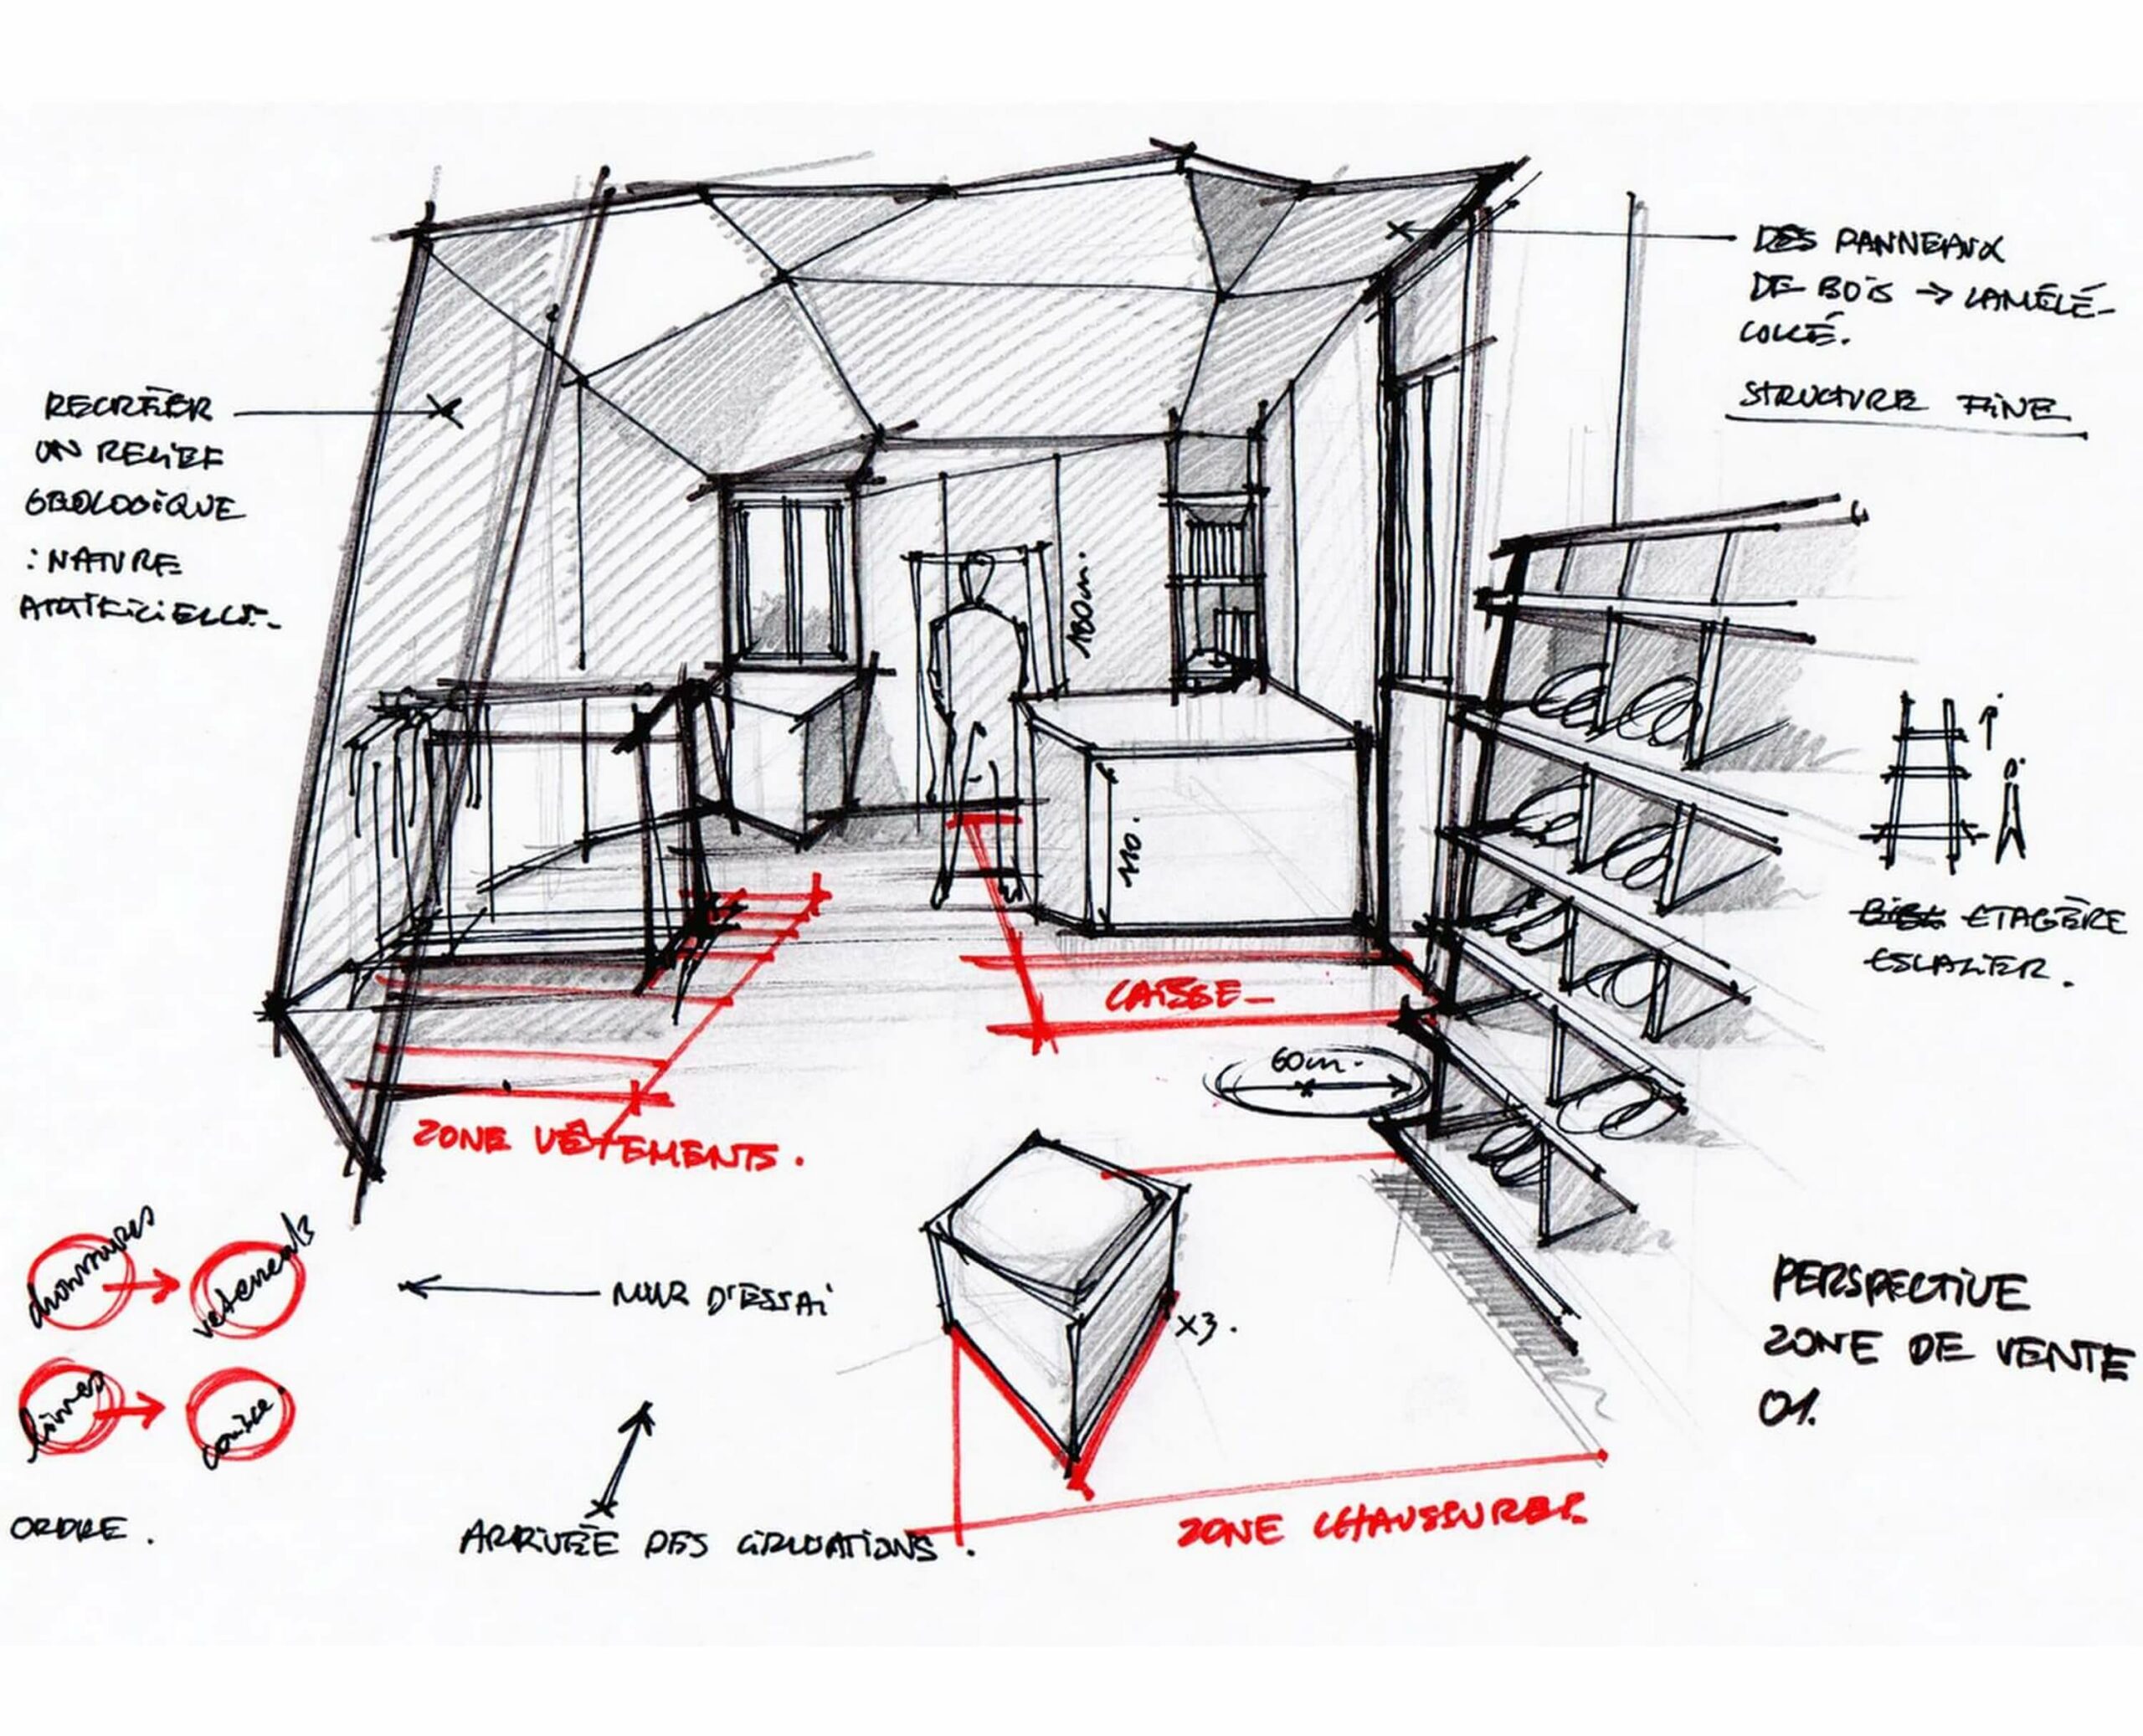 DES PANNEAUX
DE BOIS → LAMÉLÉ-
COLLÉ.
STRUCTURE FINE
RECRÉER
UN RELIEF
GEOLOGIQUE
: NATURE
ARTIFICIELLE.
180cm.
110.
ETAGÈRE
ESCALIER.
CAISSE
60cm.
ZONE VÊTEMENTS.
chaussures → vetements
MUR D'ESSAI
x3.
livres → caisse.
PERSPECTIVE
ZONE DE VENTE
01.
ORDRE.
ARRIVÉE DES CIRCULATIONS.
ZONE CHAUSSURES.